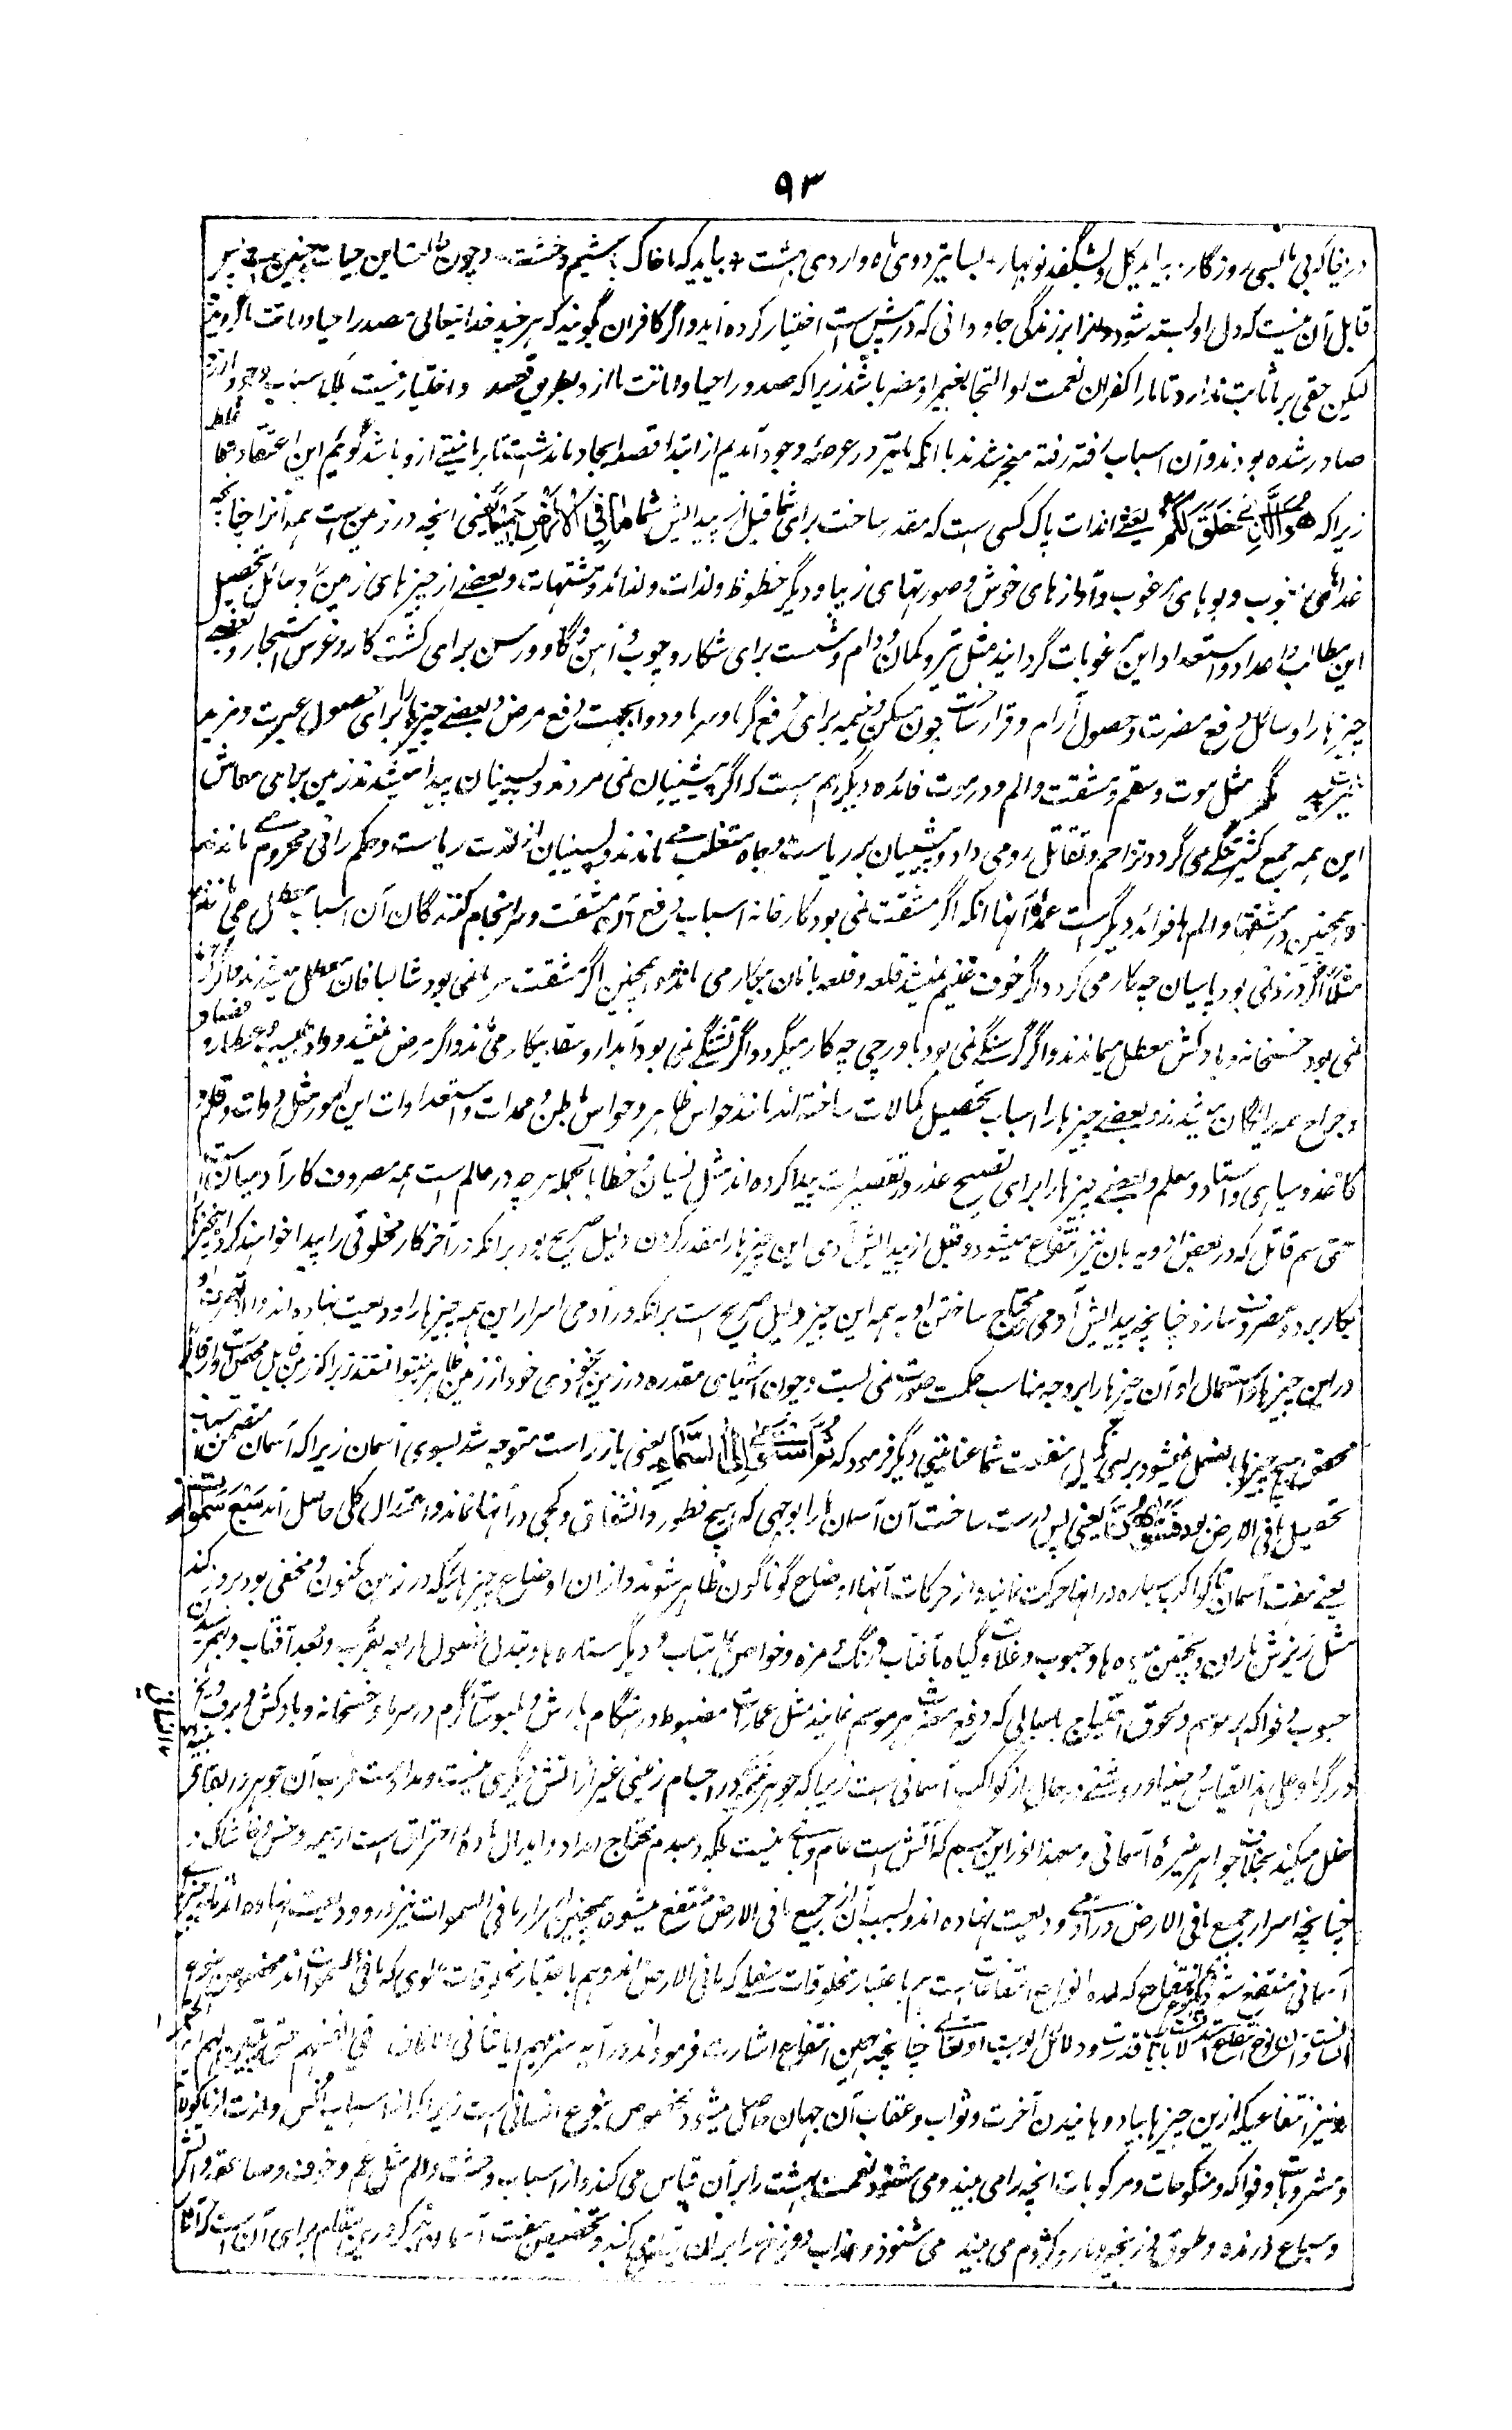 ۹۳
دریغا که بی ما بسی روزگار بروید گل و بشگفد نوبهار بسا تیر و دی ماه و اردی بهشت بیاید که ما خاک باشیم و خشت و چون این حیات چنین
قابل آن نیست که دل او بسته شود و لهذا بر زندگی جاودانی که در پیش است اختیار کرده آید و اگر کافران گویند که هر چند خدا تعالی مصدر احیا و اماتت ما گردید
لیکن حقی بر ما ثابت ندارد تا ما را کفران نعمت او و التجا بغیر او مضر باشد زیرا که صدور احیا و اماتت ما از و بطریق قصد و اختیار نیست بلکه
صادر شده بودند و آن اسباب رفته رفته منجر شدند بآنکه ما نیز در عرصهٔ وجود آمدیم از ابتدا قصد ایجاد ما نداشت تا بر ما منتی از و باشد گوئیم این اعتقاد شما غلط
زیرا که هُوَ الَّذِي خَلَقَ لَكُم یعنی آن ذات پاک کسی است که مقدر ساخت برای شما قبل از پیدایش شما مَا فِي الْأَرْضِ جَمِيعًا یعنی آنچه در زمین است همه آن را چنانچه
غذاهای خوب و بوهای مرغوب و آوازهای خوش و صورتهای زیبا و دیگر حظوظ و لذات و لذائذ و مشتهیات و بعضی از چیزهای زمین را وسائل تحصیل
این مطالب و امداد و استعداد این مرغوبات گردانید مثل تیر و کمان و دام و شست برای شکار و چوب و آهن و گاو و رسن برای کشت کار و غرس اشجار و بعضی
چیزها را وسائل دفع مضرت و حصول آرام و قرار ساخت چون مسکن و خیمه برای دفع گرما و سرما و دوا بجهت دفع مرض و بعضی چیزها را برای حصول عبرت و مزید
مثل موت و سقم و مشقت و الم و در موت فائده دیگر هم هست که اگر پیشینیان نمی مردند و پسینیان پیدا میشدند زمین بجای معاش
این همه جمع کثیر تنگ می گردد و تزاحم و تقاتل رو می داد و پیشینیان بر ریاست و جاه متغلب می ماندند و پسینیان از لذت ریاست و حکم رانی محروم می ماندند
و همچنین در مشقتها و الم ها فوائد دیگر است عمدهٔ آنها آنکه اگر مشقت نمی بود کارخانه اسباب دفع آن مشقت و سرانجام کنندگان آن اسباب معطل می ماندند
مثلا اگر دزد نمی بود پاسبان چه کار می کرد و اگر خوف غنیم نمیشد قلعه و قلعه بانان بیکار می ماندند و همچنین اگر مشقت سرما نمی بود شالبافان معطل میشدند و اگر گرما
نمی بود خسخانه و بادکش معطل میماندند و اگر گرسنگی نمی بود باورچی چه کار میکرد و اگر تشنگی نمی بود آبدار و سقا بیکار می شدند و اگر مرض نمیشد دوا و طبیب و عطار و فصاد
و جراح همه رایگان میشدند و بعضی چیزها را اسباب تحصیل کمالات ساخته اند مانند حواس ظاهر و حواس باطن و معدات و استعدادات این امور مثل دوات و قلم و
کاغذ و سیاهی و استاد و معلم و بعضی چیزها را برای تصحیح عذر در تقصیرات پیدا کرده اند مثل نسیان و خطا بالجمله هر چه در عالم است همه مصروف کار آدمیان است
حتی سم قاتل که در بعض ادویه بآن نیز انتفاع میشود و قبل از پیدایش آدمی این چیزها را مقدر کردن دلیل صریح بود بر آنکه در آخر کار مخلوقی را پیدا خواهند کرد که این چیزها
بکار برد و مصرف سازد چنانچه پیدایش آدمی و محتاج ساختن او به همه این چیز دلیل صریح است بر آنکه در آدمی اسرار این همه چیزها را ودیعت نهاده اند
در این چیزها و استعمال او آن چیزها را بر وجه مناسب حکمت صورت نمی بست و چون اشیای مقدره در زمین بخودی خود از زمین ظاهر نمیتوانستند زیرا که زمین قابل محض است و از قابل
محض هیچ چیز بالفعل نمیشود بر تکمیل منفعت شما عنایتی دیگر فرمود که ثُمَّ اسْتَوَىٰ إِلَى السَّمَاءِ یعنی باز راست متوجه شد بسوی آسمان زیرا که آسمان متضمن
تحصیل ما فی الارض بود فَسَوَّاهُنَّ یعنی پس درست ساخت آن آسمان ها را بوجهی که هیچ فطور و انشقاق و کجی در آنها نماند و اعتدال کلی حاصل آید سَبْعَ سَمَوَاتٍ
یعنی هفت آسمان تا کواکب سیاره در آنها حرکت نمایند و از حرکات آنها اوضاع گوناگون ظاهر شوند و از ان اوضاع چیزهائیکه در زمین مکنون و مخفی بود بروز کند
مثل ریزش باران و پختن میوه ها و حبوب و غلات و گیاه بآفتاب و رنگ و مزه و خواص بماهتاب و دیگر ستاره ها و تبدل فصول اربعه بقرب و بعد آفتاب و بهم رسیدن
حبوب و فواکه هر موسم و لحوق احتیاج باسبابی که دفع مضرت هر موسم نمایند مثل عمارت مضبوط در هنگام بارش و ملبوسات گرم در سرما و خسخانه و بادکش و برف و یخ
در گرما و علی هذا القیاس و ضیا و روشنی در حال از کواکب آسمانی است زیرا که جوهر مضیئه در اجسام زمینی غیر از آتش دیگری نیست و مداومت قرب آن جوهر در بقای
خلل میکند بخلاف جواهر نیرهٔ آسمانی و معهذا نور این جسم که آتش است عام و باقی نیست بلکه دمبدم محتاج امداد و ابدال مادهٔ احتراق است از هیمه و خس و خاشاک و
چنانچه اسرار جمیع ما فی الارض در آدمی ودیعت نهاده اند و بسبب آن از جمیع ما فی الارض منتفع میشود همچنین اسرار ما فی السموات نیز در و ودیعت نهاده اند تا بچیزهای
آسمانی منتفع شود که عمده انواع انتفاعات است هم باعتبار مخلوقات سفلی که ما فی الارض اند و هم باعتبار مخلوقات علوی که ما فی السموات اند مخصوص بنوع
قدرت و دلائل الوهیت او تعالی چنانچه بهمین انتفاع اشارت فرموده اند در آیه سنریهم آیاتنا فی الآفاق و فی انفسهم حتی یتبین لهم انه الحق
و نیز انتفاعیکه ازین چیزها بیاد دهانیدن آخرت و ثواب و عقاب آن جهان حاصل میشود مخصوص بنوع انسانی است زیرا که از اسباب انس و لذت از ماکولات
و مشروبات و فواکه و منکوحات و مرکوبات آنچه را می بیند و می شنود نعمت بهشت را بر آن قیاس می کند و از اسباب وحشت و الم مثل غم و خوف و صاعقه و آتش
و سباع درنده و طوق و زنجیر و مار و کژدم می بیند می شنود و عذاب دوزخ را بر آن قیاس می کند و تخصیص هفت آسمان بذکر درین مقام برای آن است